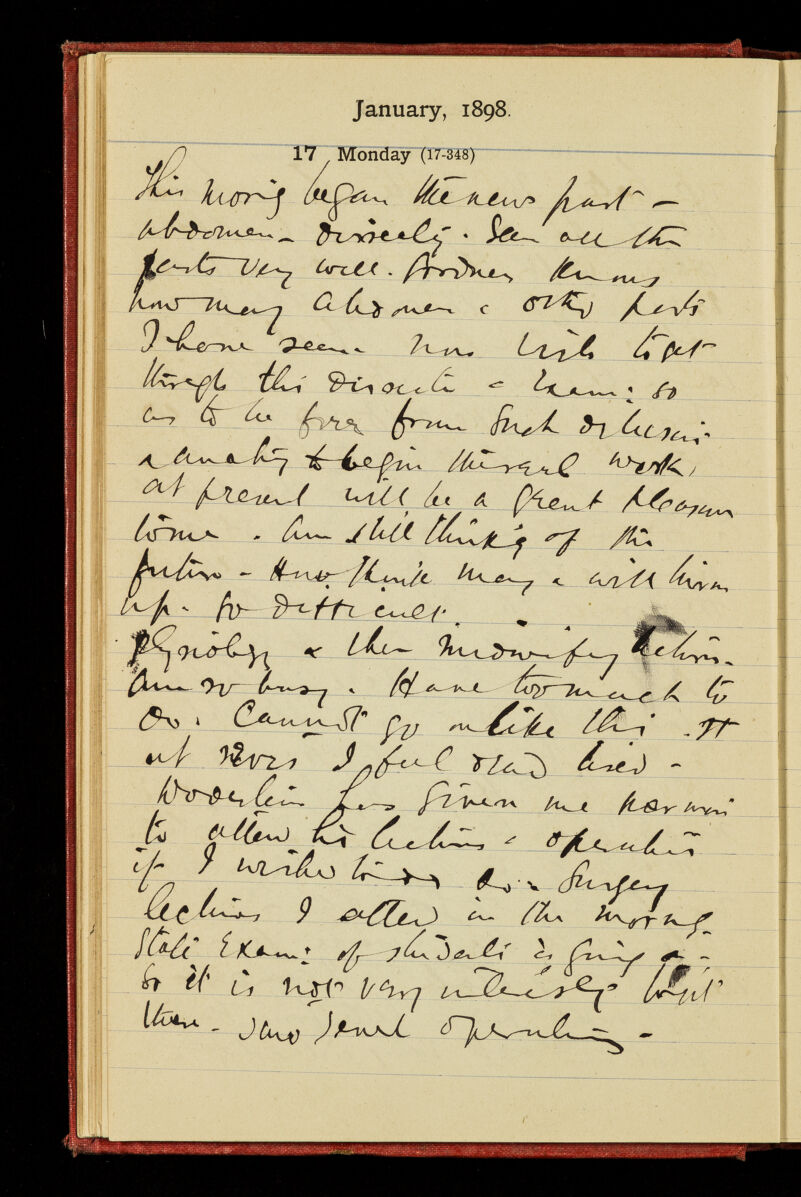 January, 1898.
17 Monday (17-348)
This morng began the new part –
abdomen – Dissectg. Seen all the
parts very well.
how many Abdomen & other parts
I have seen now wish to get
through this Dissectn & Exam: so
as to be free from such
to begin work,
at present will be a great pleasure
to me. Am still thinkg of the
future – How think may & will turn
up. So difficult.
Physiology & then Midwifery lectures.
Am so busy. Have too much to
do. Cannot go on like this. It
at I feel dead tired –
has given me
to atten his lectures & operatns
if I wished to do so. Surgery
lectures I atten in the morng.
State Exam: of students is going on –
So it is not very to sit
there. Saw sevel operatng –